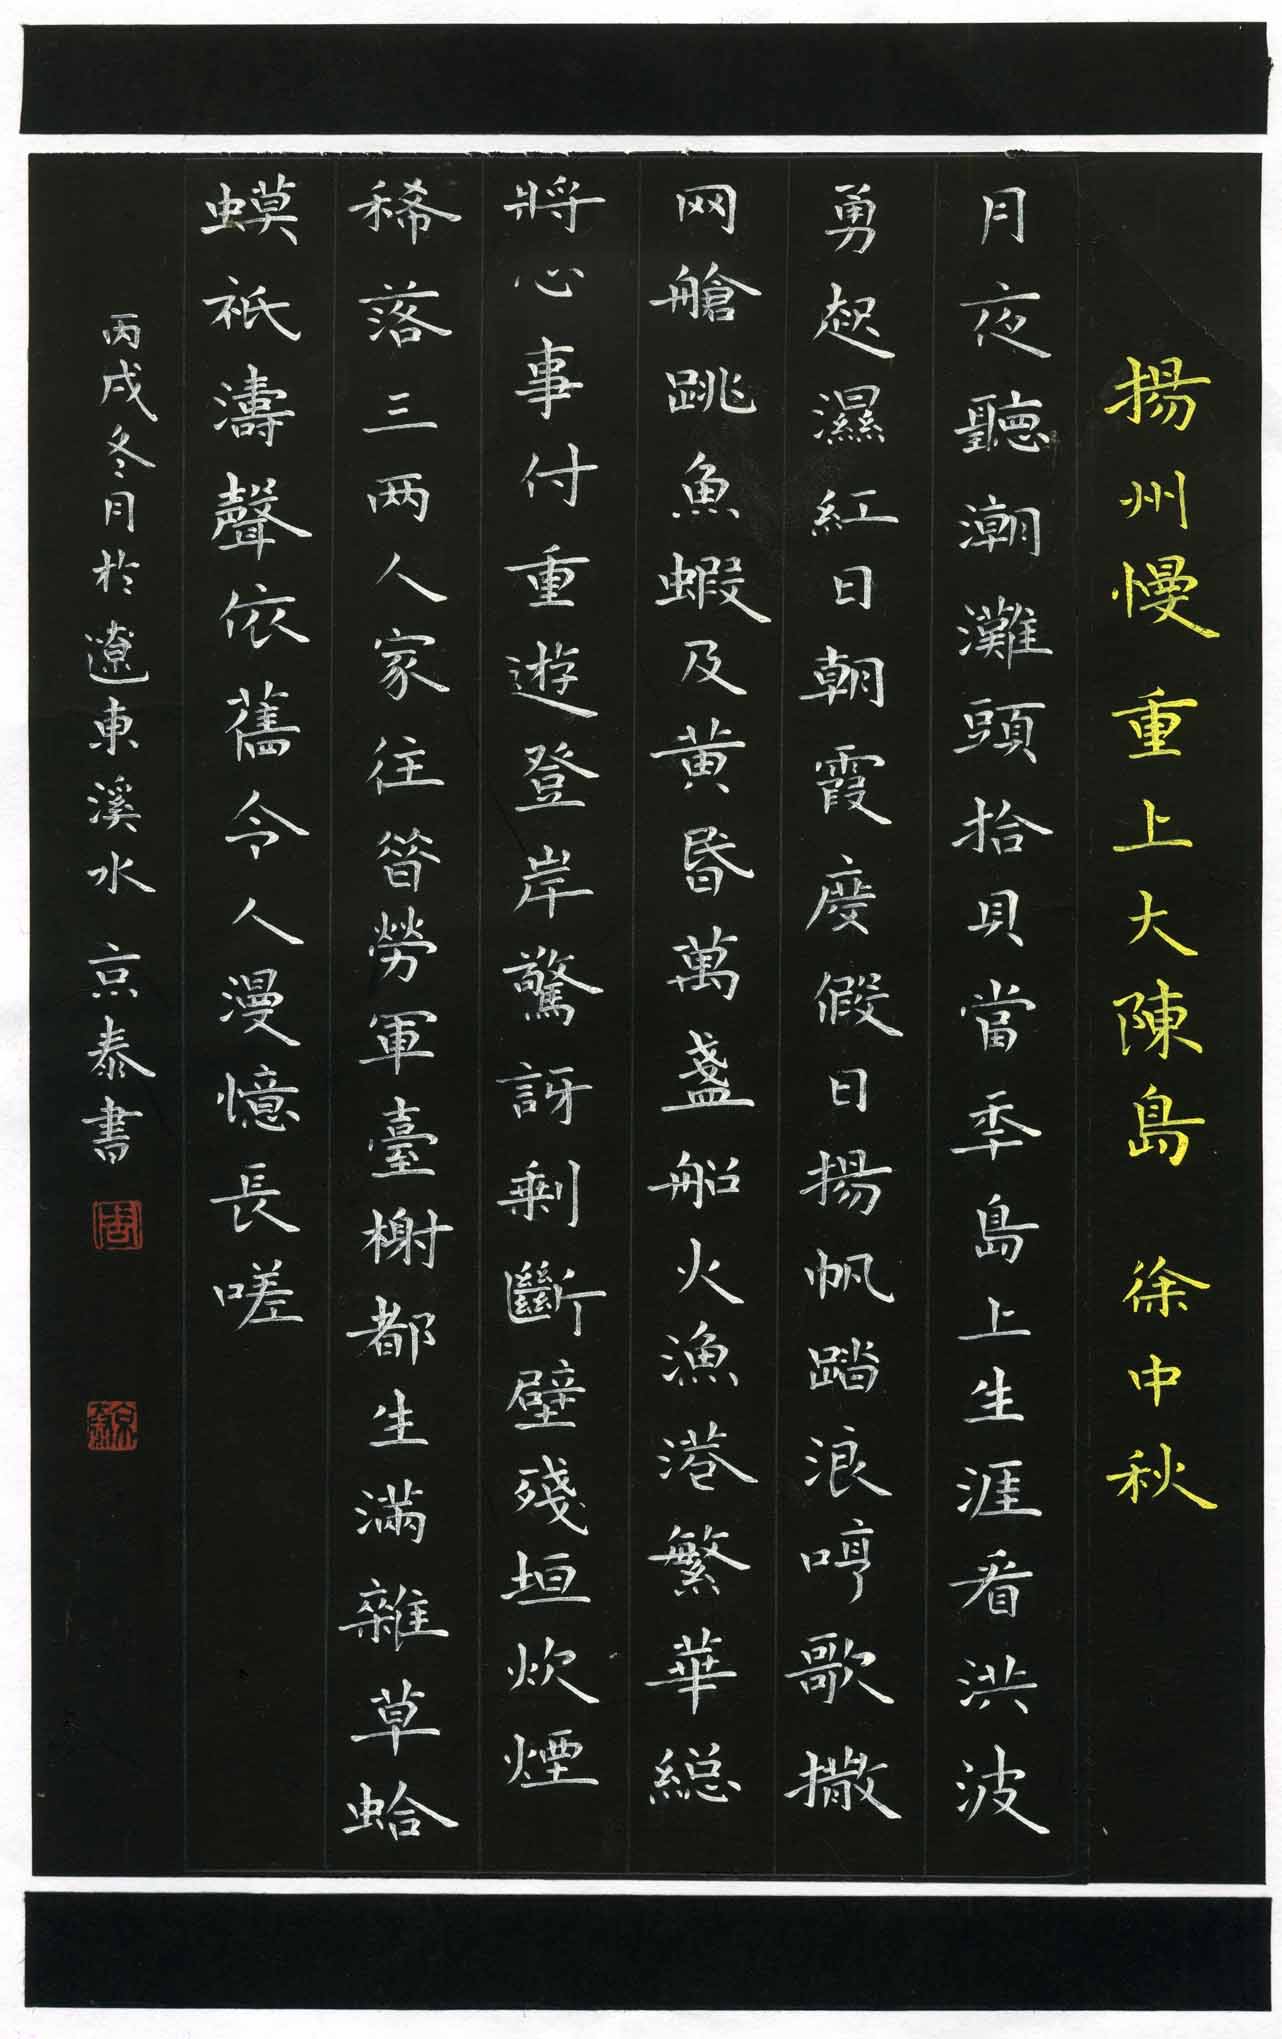 揚州慢 重上大陳島 徐中秋
月夜聽潮灘頭拾貝當季島上生涯看洪波
勇起濕紅日朝霞度假日揚帆踏浪哼歌撒
网艙跳魚蝦及黄昏萬盞船火漁港繁華總
將心事付重遊登岸驚訝剩斷壁殘垣炊煙
稀落三两人家往昝勞軍臺榭都生滿雜草蛤
蟆祇濤聲依舊令人漫憶長嗟
丙戌冬月於遼東溪水 京泰書
周
京泰